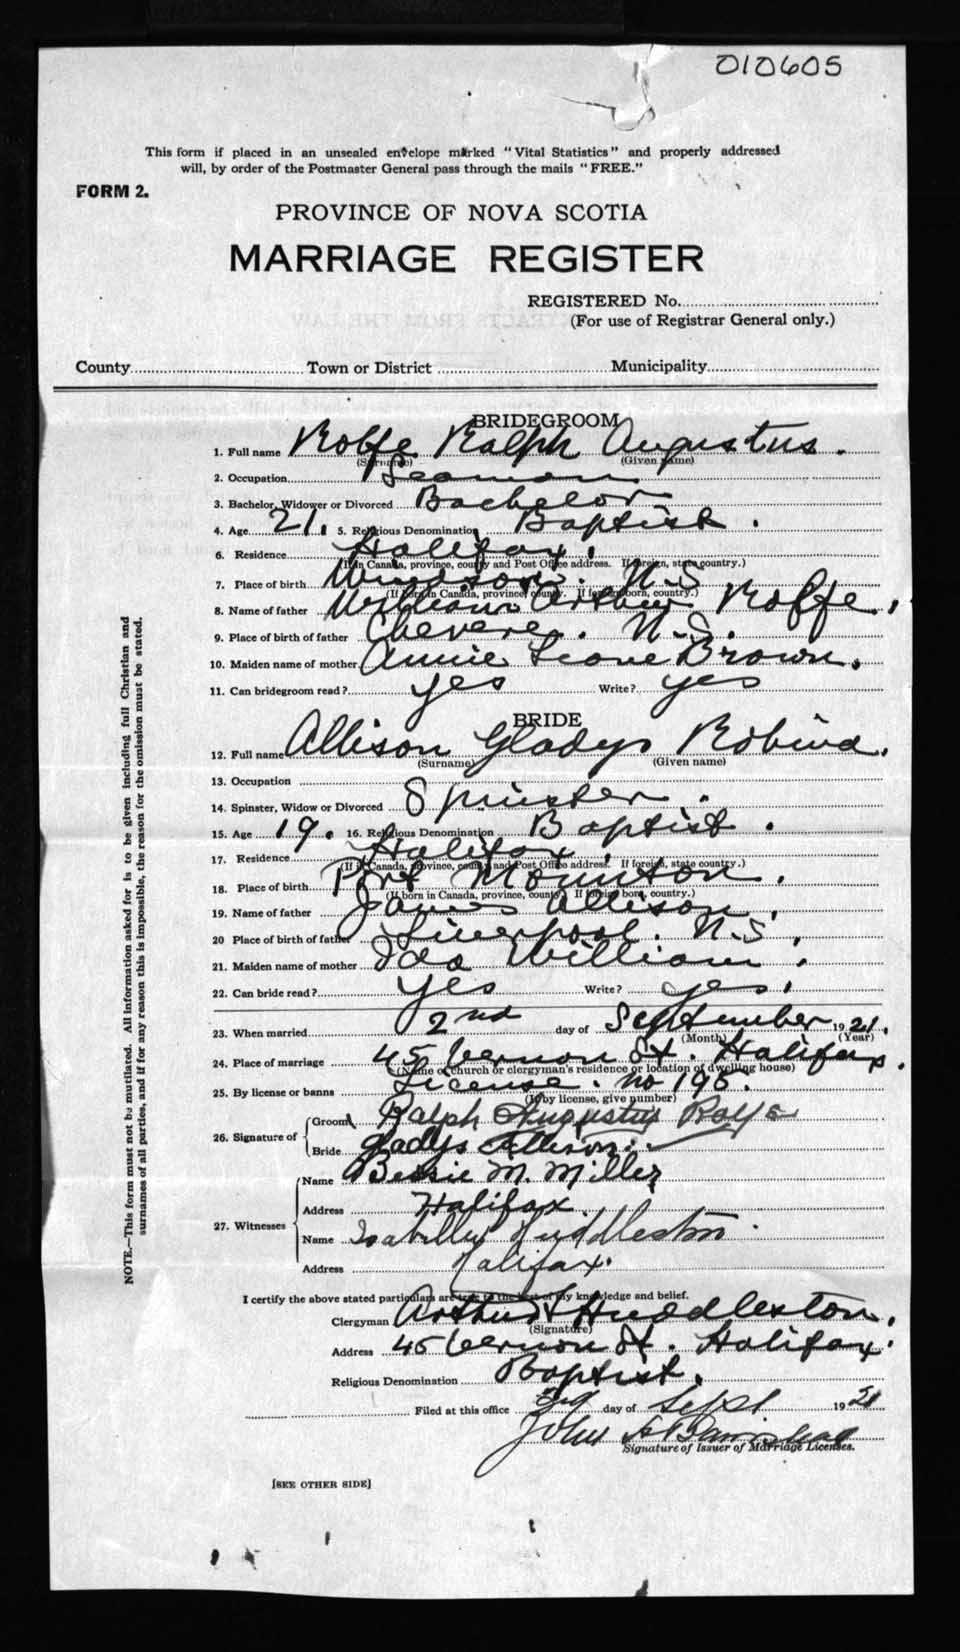 010605
This form if placed in an unsealed envelope marked "Vital Statistics" and properly addressed
will, by order of the Postmaster General pass through the mails "FREE."
FORM 2.
PROVINCE OF NOVA SCOTIA
MARRIAGE REGISTER
REGISTERED No.
(For use of Registrar General only.)
County Town or District Municipality
BRIDEGROOM
1. Full name Rolfe Ralph Augustus.
(Surname) (Given name)
2. Occupation Seaman
3. Bachelor, Widower or Divorced Bachelor
4. Age 21. 5. Religious Denomination Baptist.
6. Residence Halifax.
(If in Canada, province, county and Post Office address. If foreign, state country.)
7. Place of birth Windsor. N.S
(If born in Canada, province, county. If foreign born, country.)
8. Name of father William Arthur Rolfe.
9. Place of birth of father N.S.
10. Maiden name of mother Annie Brown.
11. Can bridegroom read? yes Write? yes
BRIDE
12. Full name Allison Gladys Robina.
(Surname) (Given name)
13. Occupation
14. Spinster, Widow or Divorced Spinster.
15. Age 19. 16. Religious Denomination Baptist.
17. Residence Halifax.
(If in Canada, province, county and Post Office address. If foreign, state country.)
18. Place of birth Port Mounton.
(If born in Canada, province, county. If foreign born, country.)
19. Name of father James Allison.
20 Place of birth of father Liverpool. N.S.
21. Maiden name of mother Ida William.
22. Can bride read? yes Write? yes.
23. When married 2nd day of September 1921.
(Month) (Year)
24. Place of marriage 45 Vernon St. Halifax.
(Name of church or clergyman's residence or location of dwelling house)
25. By license or banns License. no 195.
(If by license, give number)
26. Signature of Groom Ralph Augustus Rolfe
Bride Gladys Allison.
27. Witnesses Name Bessie M. Miller
Address Halifax.
Name Isabella Huddleston.
Address Halifax.
I certify the above stated particulars are true to the best of my knowledge and belief.
Clergyman Arthur Huddleston.
(Signature)
Address 45 Vernon St. Halifax.
Religious Denomination Baptist.
Filed at this office 3rd day of Sept 1921
John
Signature of Issuer of Marriage Licenses.
[SEE OTHER SIDE]
NOTE.—This form must not be mutilated. All information asked for is to be given including full Christian and
surnames of all parties, and if for any reason this is impossible, the reason for the omission must be stated.